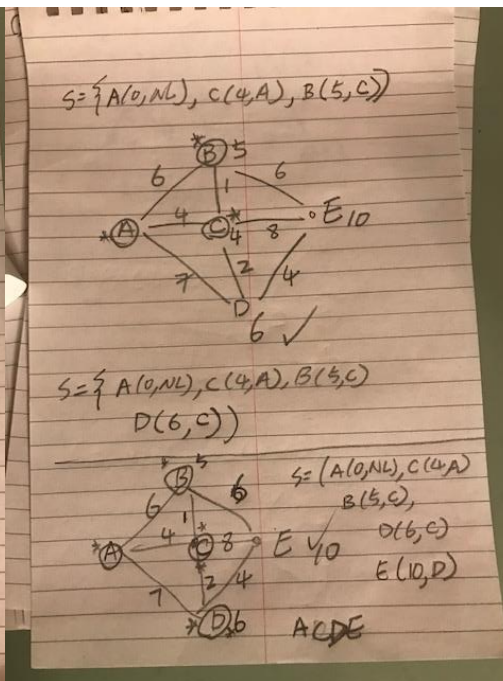 S={A(0,NL), C(4,A), B(5,C)}
*B 5
6 1 6
*A 4 C* 4 8 E 10
7 2 4
D
6 ✓
S={A(0,NL), C(4,A), B(5,C)
D(6,C))
B 5
6 1 6
*A 4 *C 8 E ✓10
7 2 4
*D 6
S=(A(0,NL), C(4,A)
B(5,C),
D(6,C)
E(10,D)
ACDE